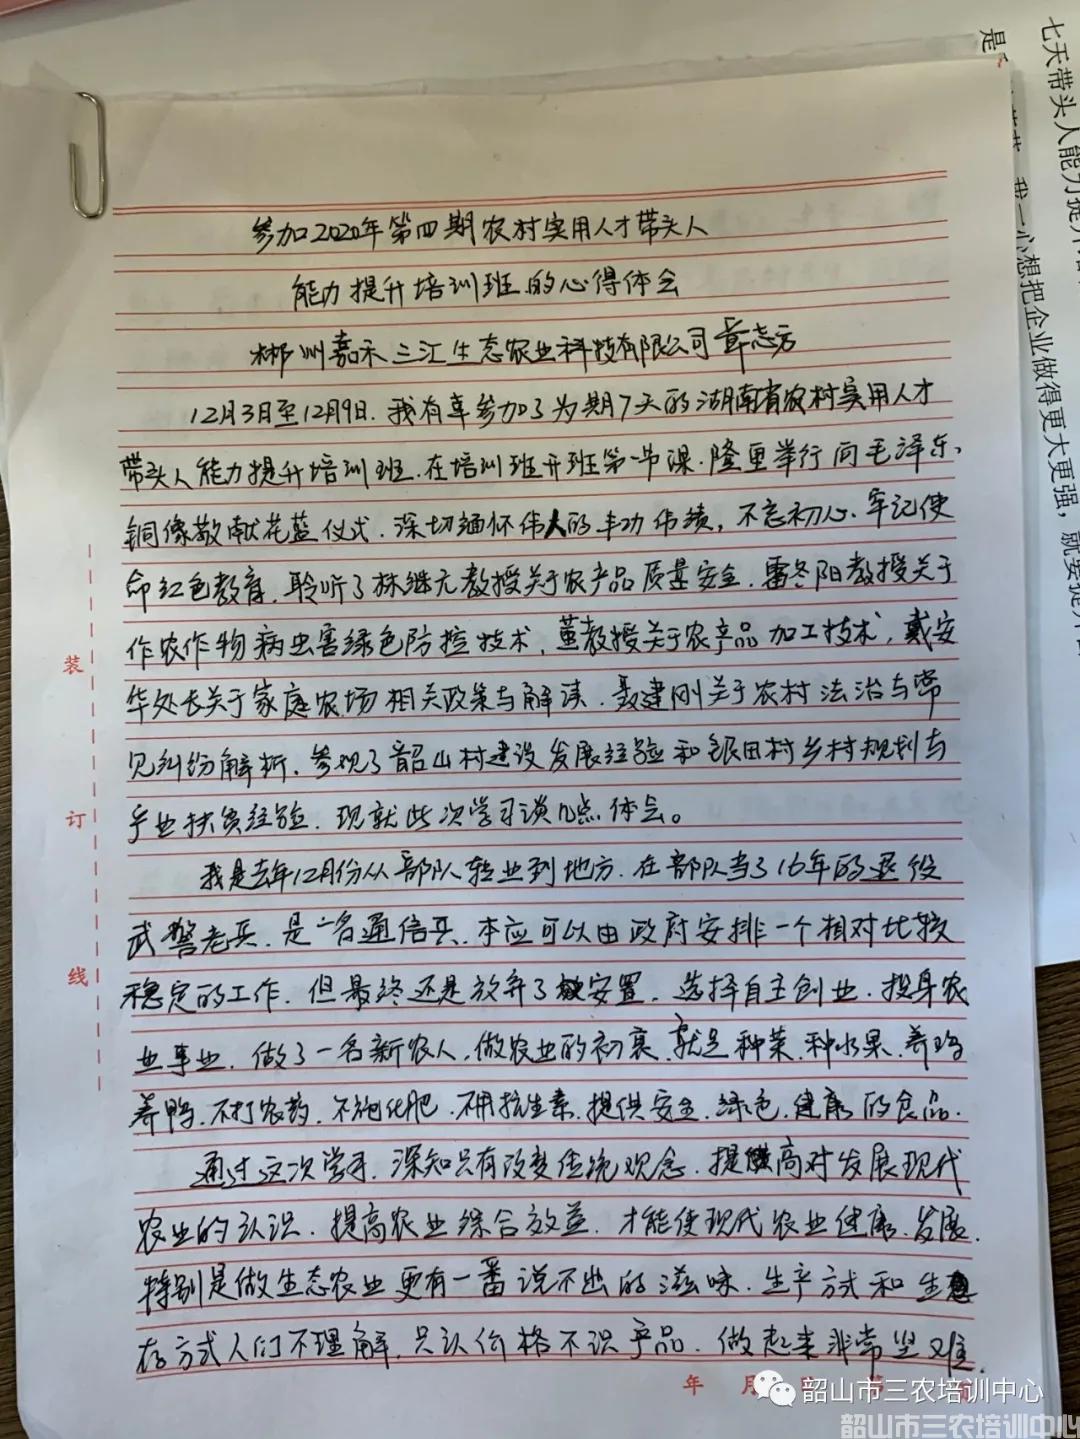 参加2020年第四期农村实用人才带头人
能力提升培训班的心得体会
郴州嘉禾三江生态农业科技有限公司 章志方
12月3日至12月9日.我有幸参加了为期7天的湖南省农村实用人才
带头人能力提升培训班.在培训班开班第一节课.隆重举行向毛泽东、
铜像敬献花蓝仪式.深切缅怀伟人的丰功伟绩,不忘初心.牢记使
命红色教育.聆听了林继元教授关于农产品质量安全.雷冬阳教授关于
作农作物病虫害绿色防控技术,董教授关于农产品加工技术,戴安
华处长关于家庭农场相关政策与解读.聂建刚关于农村法治与常
见纠纷解析.参观了韶山村建设发展经验和银田村乡村规划与
产业扶贫经验.现就此次学习谈几点体会。
我是去年12月份从部队转业到地方.在部队当了16年的退役
武警老兵.是一名通信兵.本应可以由政府安排一个相对比较
稳定的工作.但最终还是放弃了安置.选择自主创业.投身农
业事业.做了一名新农人,做农业的初衷.就是种菜.种水果.养鸡
养鸭.不打农药.不施化肥.不用抗生素.提供安全.绿色.健康的食品.
通过这次学习.深知只有改变传统观念.提高对发展现代
农业的认识.提高农业综合效益.才能使现代农业健康.发展.
特别是做生态农业更有一番说不出的滋味.生产方式和生
存方式人们不理解.只认价格不识产品.做起来非常坚难.
装
订
线
年 月 第
七天带头人能力提升
是
我一心想把企业做得更大更强,就要提升
韶山市三农培训中心
韶山市三农培训中心